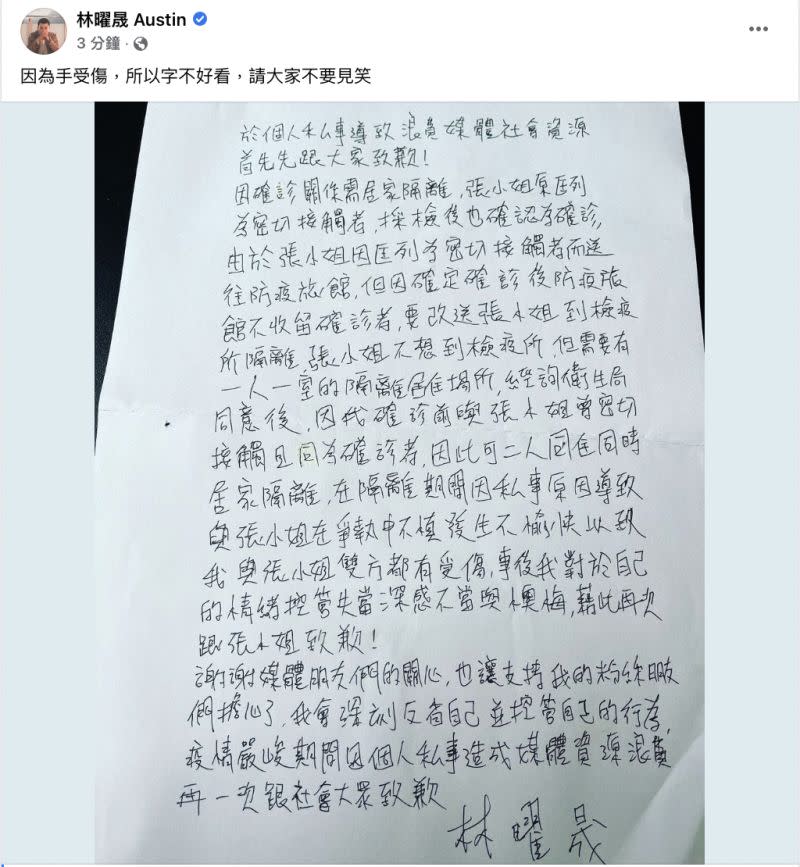 林曜晟 Austin
3 分鐘 ·
因為手受傷，所以字不好看，請大家不要見笑
於個人私事導致浪費媒體社會資源
首先先跟大家致歉!
因確診關係需居家隔離,張小姐原匡列
為密切接觸者,採檢後也確認為確診,
由於張小姐因匡列為密切接觸者而送
往防疫旅館,但因確定確診後防疫旅
館不收留確診者,要改送張小姐到檢疫
所隔離,張小姐不想到檢疫所,但需要有
一人一室的隔離居住場所,經詢衛生局
同意後,因我確診前與張小姐曾密切
接觸且同為確診者,因此可二人同住同時
居家隔離,在隔離期間因私事原因導致
與張小姐在爭執中不慎發生不愉快以致
我與張小姐雙方都有受傷,事後我對於自己
的情緒控管失當深感不當與懊悔,藉此再次
跟張小姐致歉!
謝謝媒體朋友們的關心,也讓支持我的粉絲朋友
們擔心了,我會深刻反省自己並控管自己的行為,
疫情嚴峻期間因個人私事造成媒體資源浪費
再一次跟社會大眾致歉
林曜晟